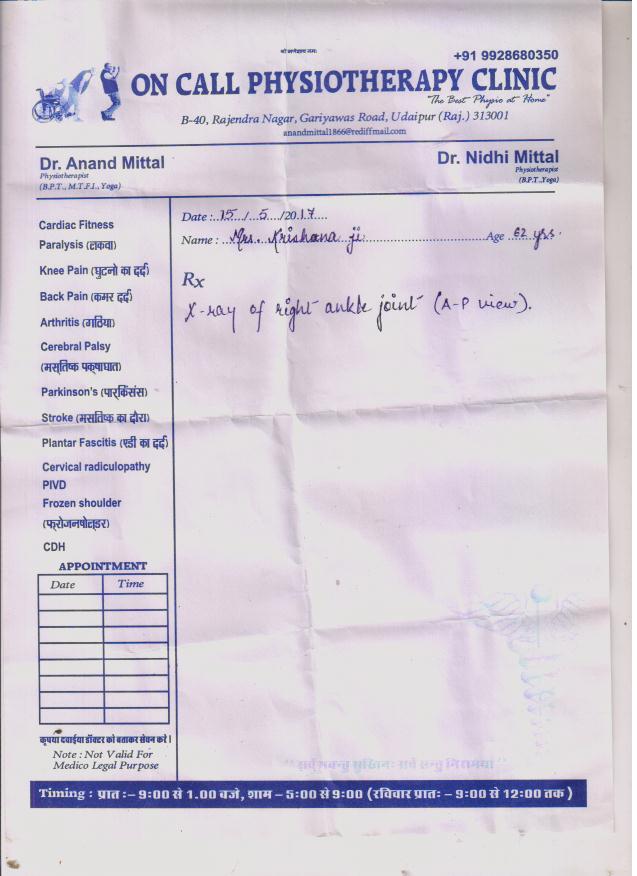 श्री गणेशाय नमः
+91 9928680350
ON CALL PHYSIOTHERAPY CLINIC
"The Best Physio at Home"
B-40, Rajendra Nagar, Gariyawas Road, Udaipur (Raj.) 313001
anandmittal1866@rediffmail.com
Dr. Anand Mittal
Physiotherapist
(B.P.T., M.T.F.I., Yoga)
Dr. Nidhi Mittal
Physiotherapist
(B.P.T.,Yoga)
Date : 15 / 5 /2017
Name : Mrs. Krishana ji Age 62 yrs.
Rx
X-ray of right ankle joint (A-P view).
Cardiac Fitness
Paralysis (लकवा)
Knee Pain (घुटनो का दर्द)
Back Pain (कमर दर्द)
Arthritis (गठिया)
Cerebral Palsy
(मस्तिष्क पक्षाघात)
Parkinson's (पार्किंसंस)
Stroke (मसतिष्क का दौरा)
Plantar Fascitis (एडी का दर्द)
Cervical radiculopathy
PIVD
Frozen shoulder
(फ्रोजनषोल्डर)
CDH
APPOINTMENT
Date Time
कृपया दवाईया डॉक्टर को बताकर सेवन करे।
Note : Not Valid For
Medico Legal Purpose
"सर्वे भवन्तु सुखिनः सर्वे सन्तु निरामया"
Timing : प्रात :– 9:00 से 1.00 बजे, शाम – 5:00 से 9:00 (रविवार प्रातः – 9:00 से 12:00 तक)